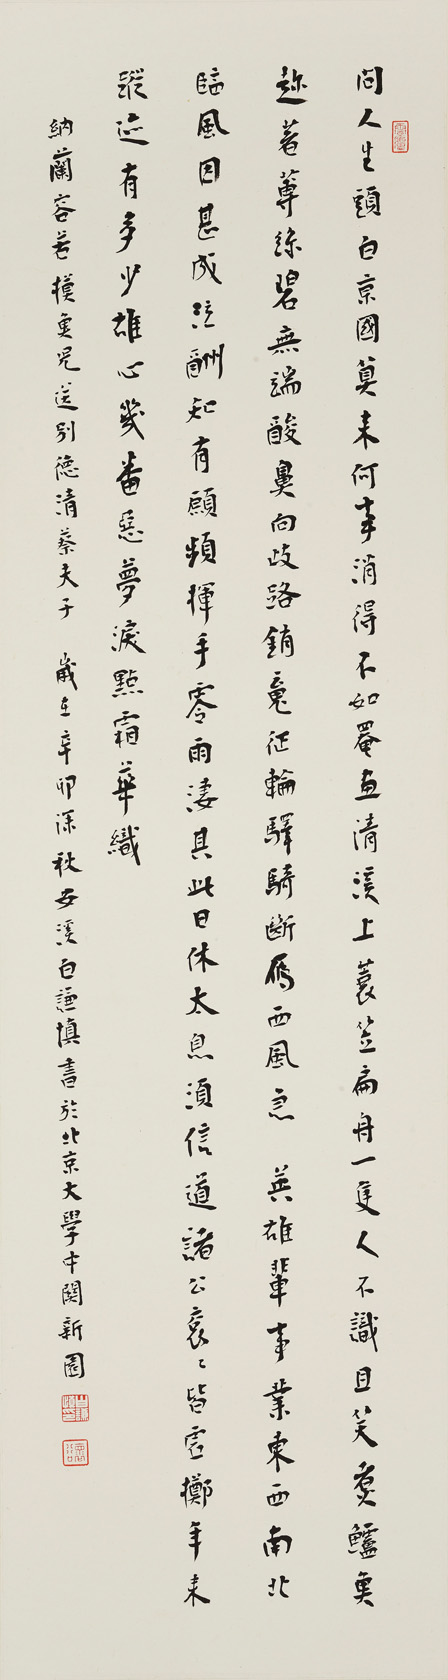 問人生頭白京國算來何事消得不如罨畫清溪上蓑笠扁舟一隻人不識且笑煮鱸魚
趁著蓴絲碧無端酸鼻向歧路銷魂征輪驛騎斷雁西風急 英雄輩事業東西南北
臨風因甚成泣酬知有願頻揮手零雨淒其此日休太息須信道諸公袞々皆虛擲年來
蹤迹有多少雄心幾番惡夢淚點霜華織
納蘭容若摸魚兒送別德清蔡夫子 歲在辛卯深秋安溪白謙慎書於北京大學中關新園